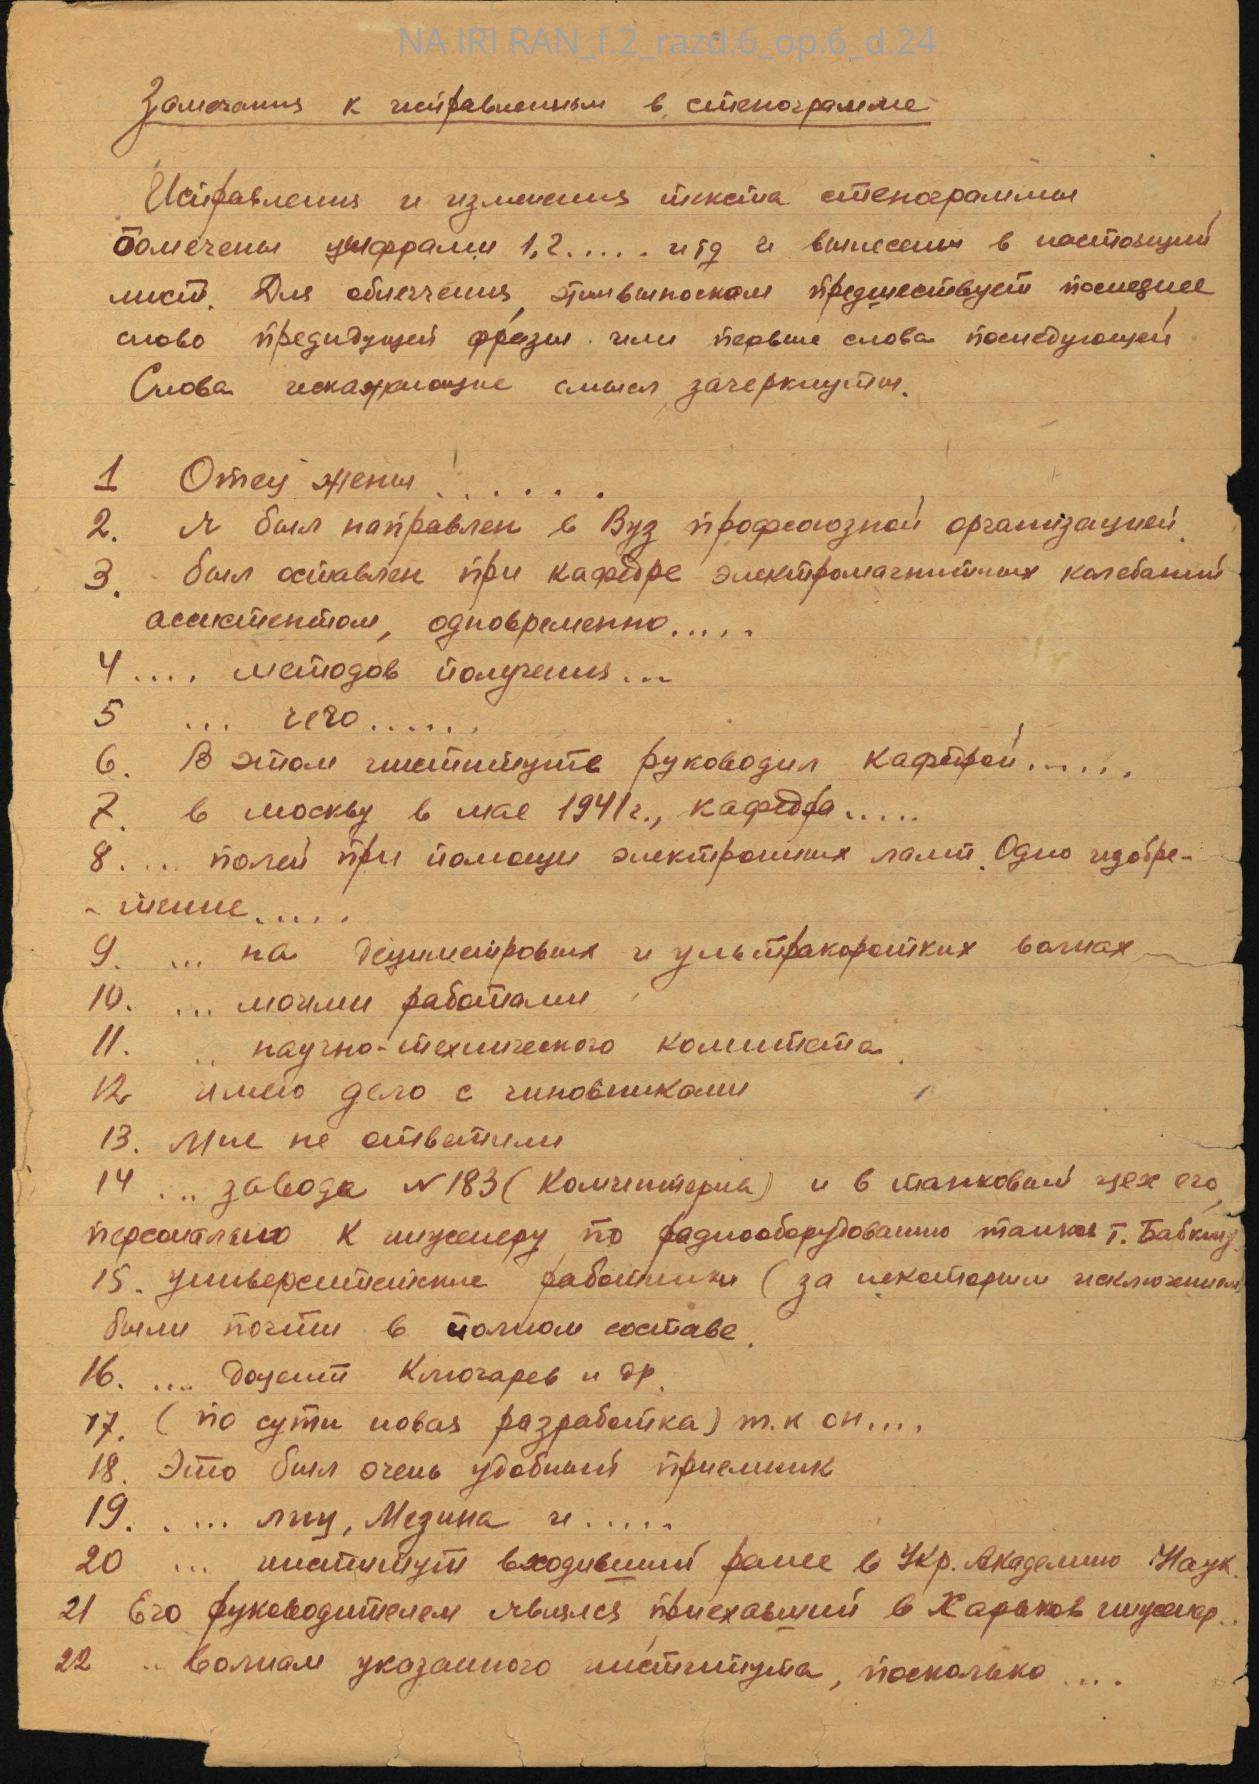 NA IRI RAN_f.2_razd.6_op.6_d.24
Замечания к исправлениям в стенограмме
Исправления и изменения текста стенограммы
помечены цифрами 1,2..... и тд и вынесены в настоящий
лист. Для облегчения, этим выноскам предшествует последнее
слово предидущей фразы или первые слова последующей
Слова искажающие смысл зачеркнуты.
1 Отец жены . . . . . .
2. Я был направлен в Вуз профсоюзной организацией.
3. был оставлен при кафедре электромагнитных колебаний
асистентом, одновременно.....
4.... методов получения...
5 ... чего......
6. В этом институте руководил кафедрой......
7. в москву в мае 1941г., кафедра.....
8... полей при помощи электронных ламп. Одно изобре-
- тение.....
9. ... на дециметровых и ультракоротких волнах
10. ... моими работами
11. .. научно-технического комитета.
12. имею дело с чиновниками
13. Мне не ответили
14 ... завода №183 (Коминтерна) и в танковый цех его,
персонально к инженеру по радиооборудованию танков т. Бабкину.
15. университетские работники (за некоторым исключением)
были почти в полном составе.
16. .... доцент Ключарев и др.
17. (по сути новая разработка) т.к он....
18. Это был очень удобный приемник
19. . ... лиц, Мезина и .....
20 ... институт входивший ранее в Укр. Академию Наук.
21 Его руководителем являлся приехавший в Харьков инженер..
22 .. волнам указанного института, поскольку ....